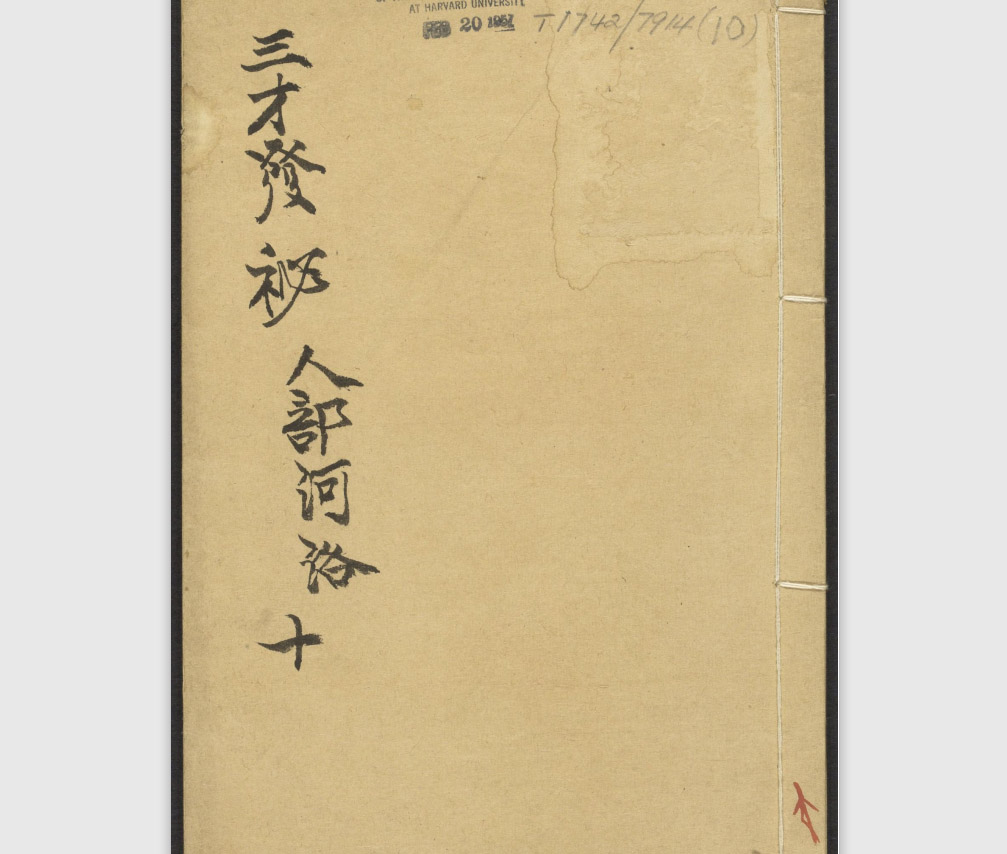 AT HARVARD UNIVERSITY
20
T1742/7914(10)
三才發祕
人部河洛
十